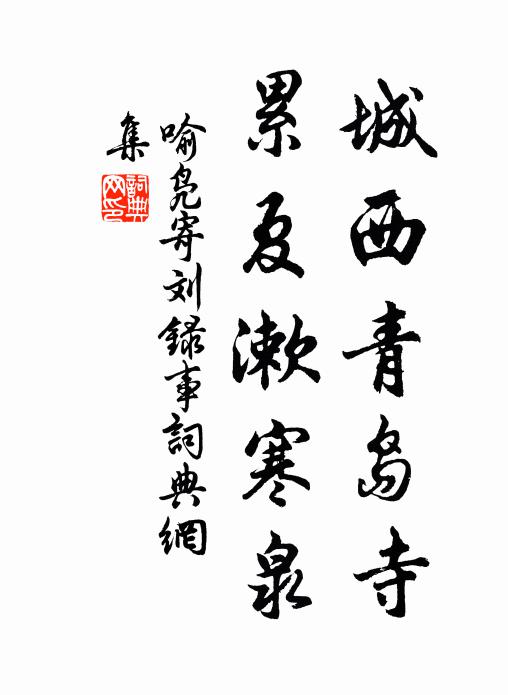 城西青岛寺
累夏漱寒泉
喻凫寄刘録事詞典網
集
詞典网印